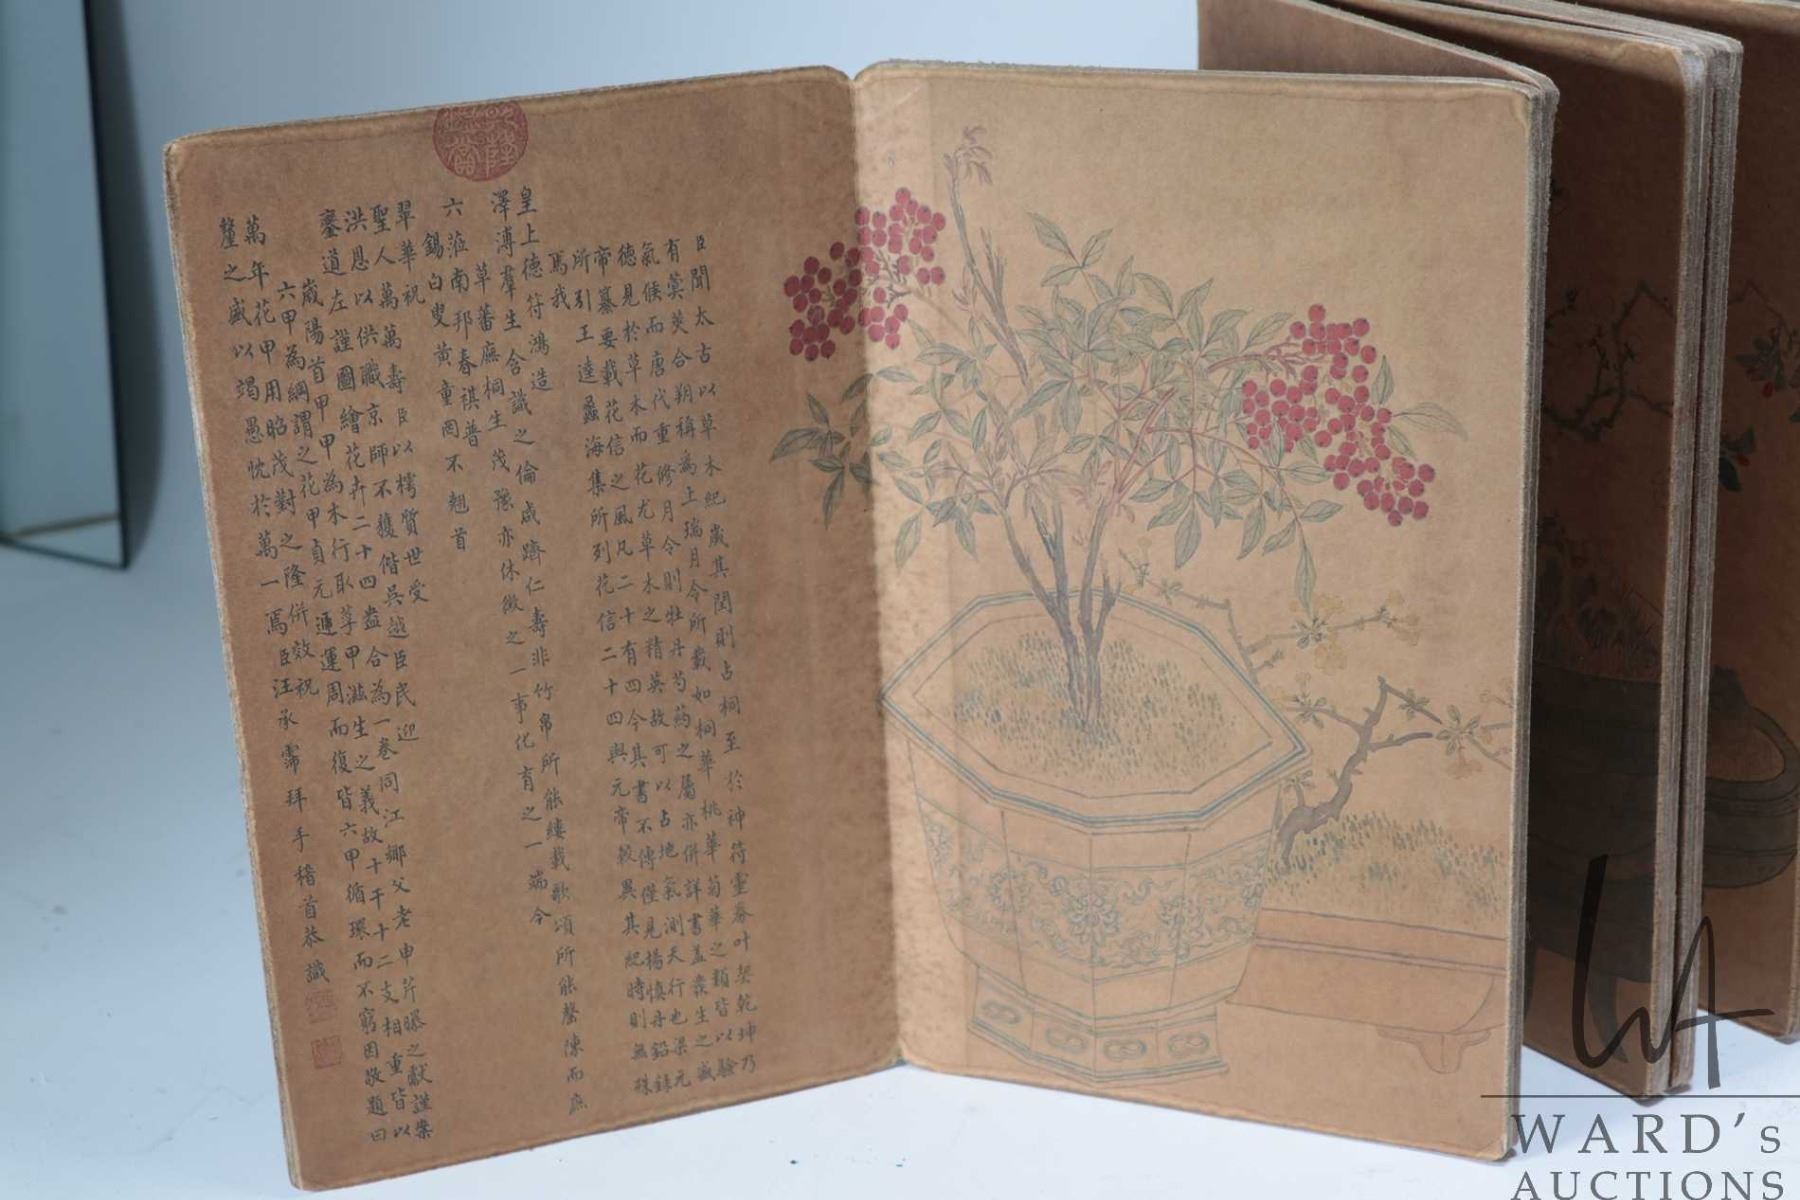 臣聞太古以草木紀歲其閏則占桐至於神符靈春叶契乾坤乃
有蓂莢合朔稱為上瑞月令所載如桐華桃華菊華之類皆以驗
氣候而唐代重修月令則牡丹芍藥之屬亦併詳書蓋羣生之盛
德見於草木而花尤草木之精英故可以占地氣測天行也梁元
帝纂要載花信之風凡二十有四今其書不傳僅見楊慎丹鉛錄
所引王逵蠡海集所列花信二十四與元帝較異其紀時則無殊
焉我
皇上德符鴻造
澤溥羣生含識之倫咸躋仁壽非竹帛所能縷載歌頌所能罄陳而庶
草蕃廡桐生茂豫亦休徵之一事化育之一端今
六蒞南邦春祺普
錫白叟黃童罔不翹首
翠華祝
聖人萬萬壽臣以樗質世受
洪恩以供職京師不獲偕吳越臣民迎
鑾道左謹圖繪花卉二十四盎合為一卷同江鄉父老申芹曝之獻謹案
歲陽首甲甲為木行取莩甲滋生之義故十干十二支相重皆以
六甲為綱謂之花甲貞元遞運周而復皆六甲循環而不窮因敬題曰
萬年花甲用昭茂對之隆併效祝
釐之盛以竭愚忱於萬一焉臣汪承霈拜手稽首恭識
WARD's
AUCTIONS